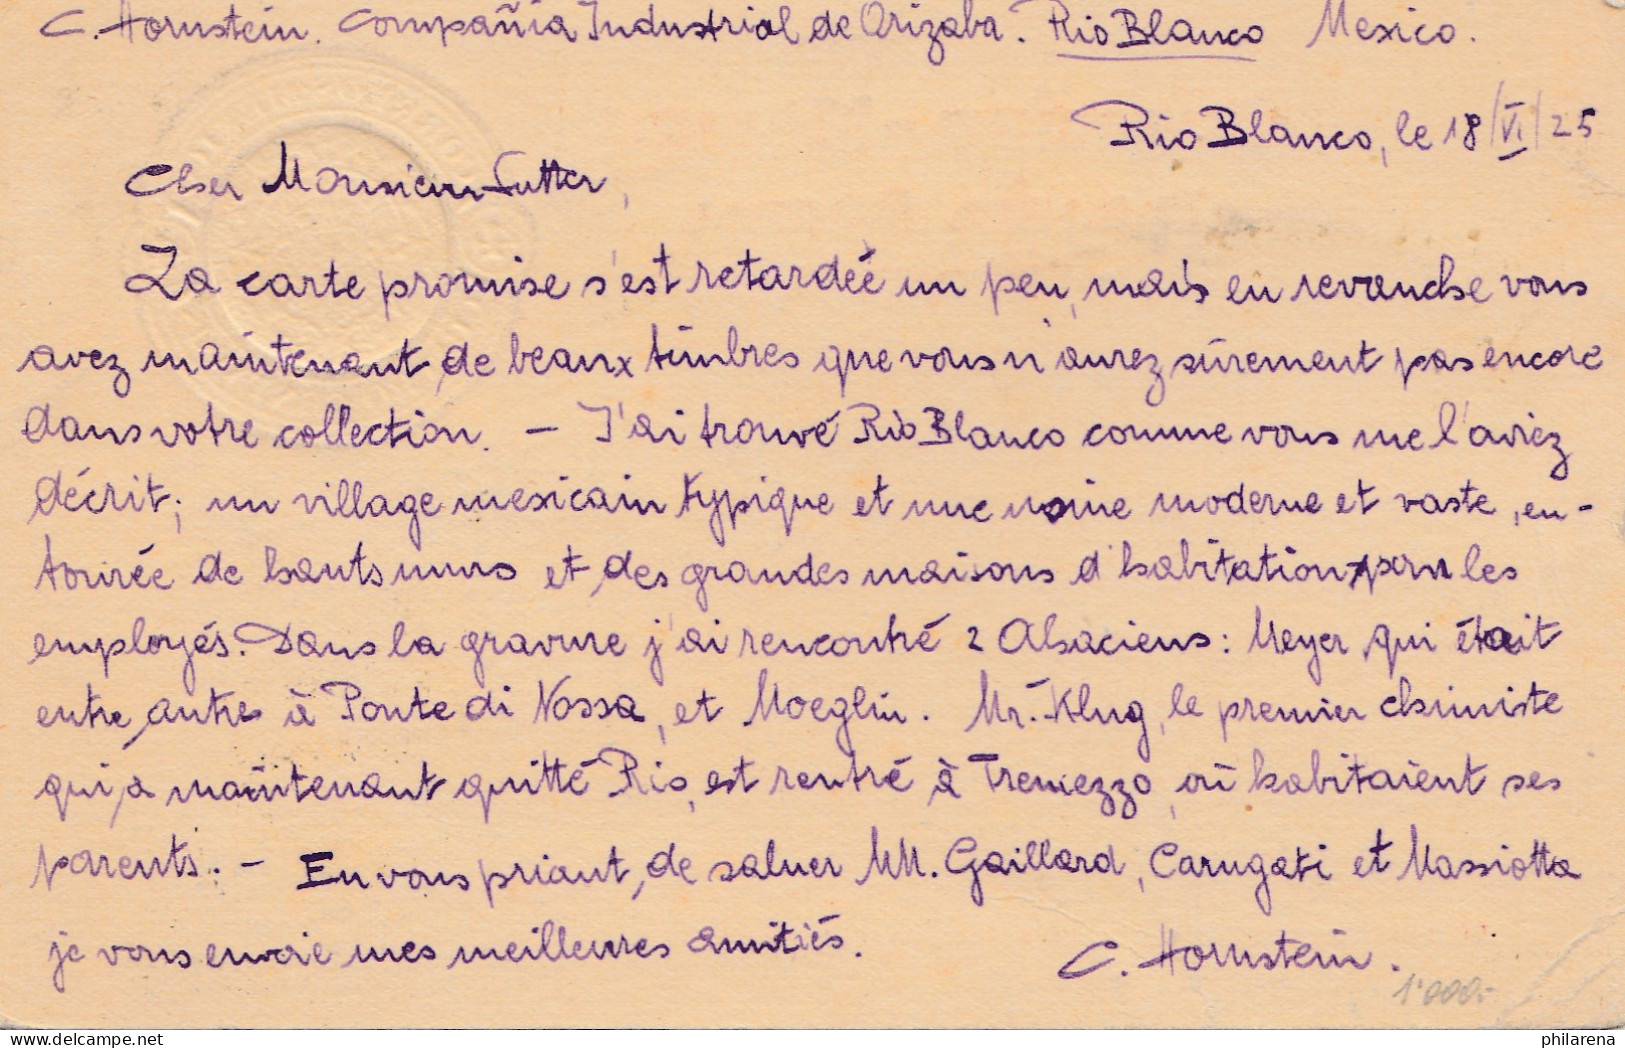 C. Hornstein. Compañia Industrial de Orizaba. Rio Blanco Mexico.
Rio Blanco, le 18/VI/25
Cher Monsieur Sutter,
La carte promise s'est retardée un peu, mais en revanche vous
avez maintenant de beaux timbres que vous n'aurez sûrement pas encore
dans votre collection. — J'ai trouvé Rio Blanco comme vous me l'aviez
décrit; un village mexicain typique et une usine moderne et vaste, en-
tourée de hauts murs et des grandes maisons d'habitation pour les
employés. Dans la gravure j'ai rencontré 2 Alsaciens: Meyer qui était
entre autres à Ponte di Nossa, et Moeglin. Mr. Klug, le premier chimiste
qui a maintenant quitté Rio, est rentré à Tremezzo, où habitaient ses
parents. — En vous priant, de saluer MM. Gaillard, Carugati et Massiotta
je vous envoie mes meilleures amitiés.
C. Hornstein.
1'000.-
philarena